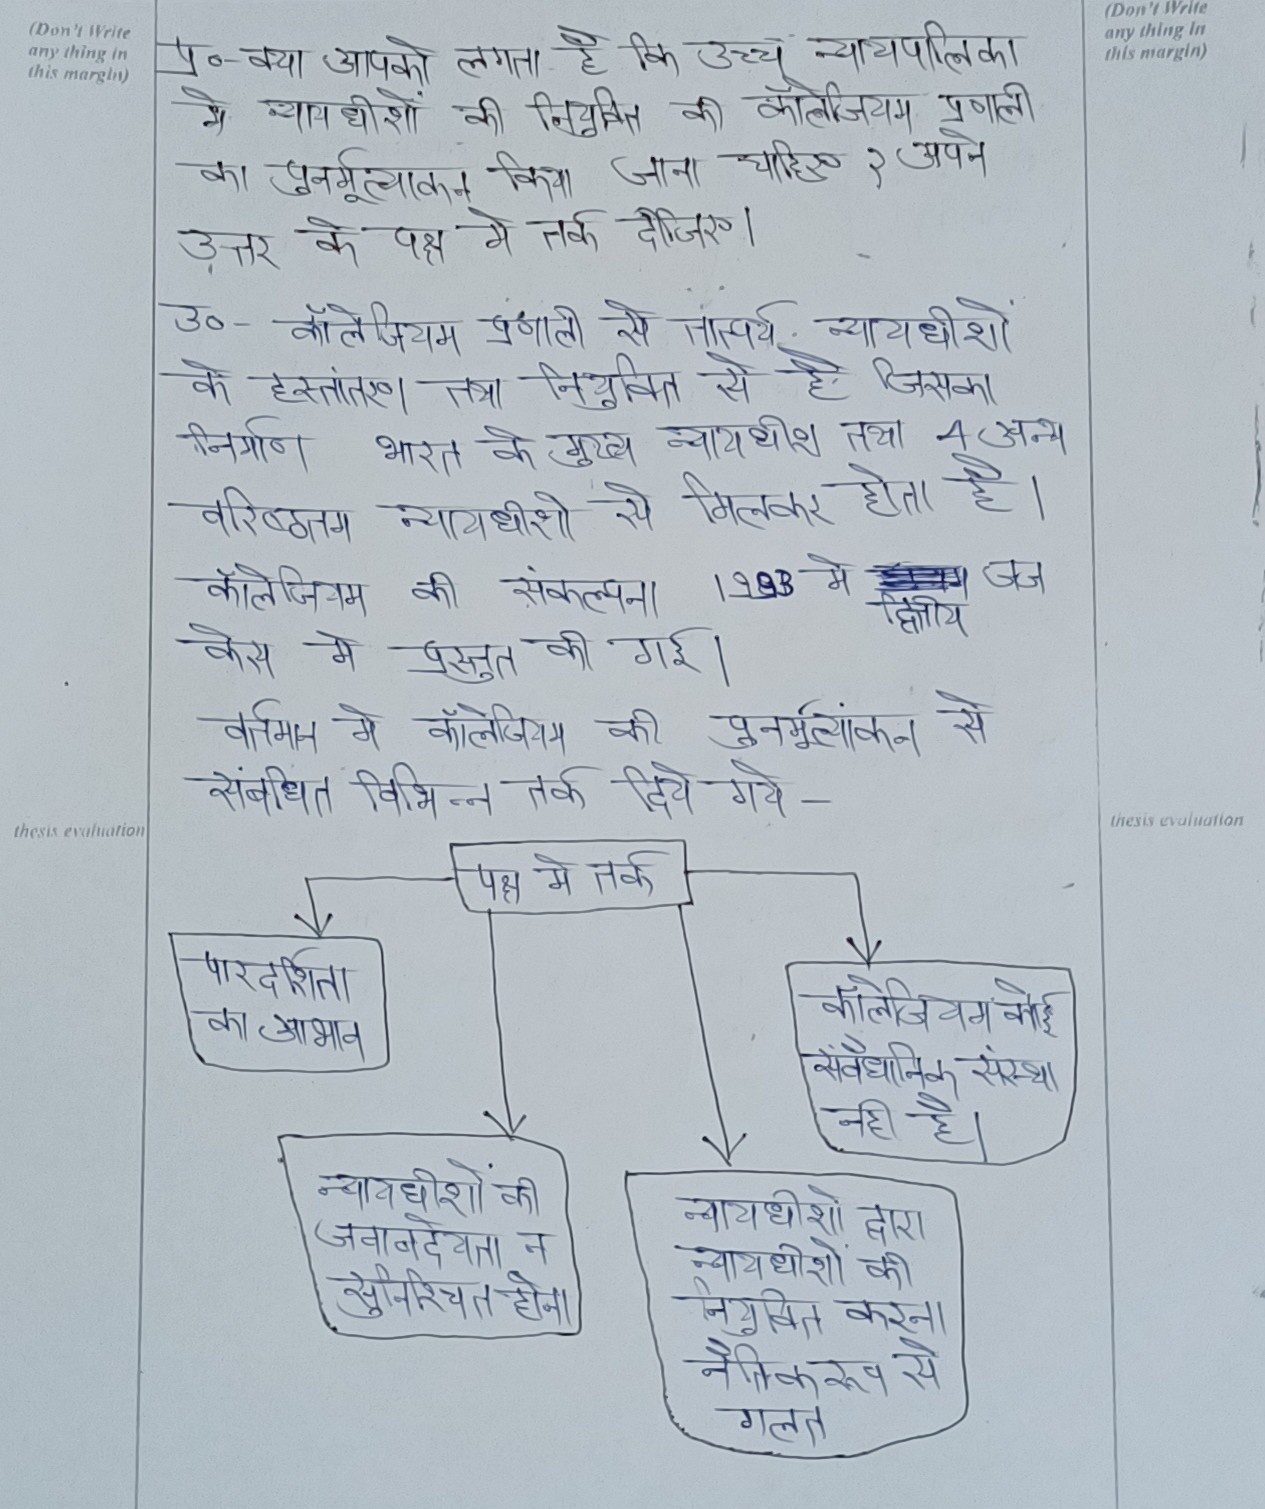 (Don't Write
any thing in
this margin)
(Don't Write
any thing in
this margin)
प्र०- क्या आपको लगता है कि उच्च न्यायपालिका
मे न्यायधीशों की नियुक्ति की कॉलेजियम प्रणाली
का पुनर्मूल्याकन किया जाना चाहिए ? अपने
उत्तर के पक्ष मे तर्क दीजिए।
उ०- कॉलेजियम प्रणाली से तात्पर्य न्यायधीशों
के हस्तांतरण तथा नियुक्ति से है जिसका
निर्माण भारत के मुख्य न्यायधीश तथा 4 अन्य
वरिष्ठतम न्यायधीशो से मिलकर होता है।
कॉलेजियम की संकल्पना 1993 मे द्वितीय जज
केस मे प्रस्तुत की गई।
वर्तमान मे कॉलेजियम की पुनर्मूल्यांकन से
संबधित विभिन्न तर्क दिये गये -
thesis evaluation
thesis evaluation
पक्ष मे तर्क
पारदर्शिता
का आभाव
कॉलेजियम कोई
संवैधानिक संस्था
नही है।
न्यायधीशों की
जवाबदेयता न
सुनिश्चित होना
न्यायधीशो द्वारा
न्यायधीशों की
नियुक्ति करना
नैतिक रूप से
गलत